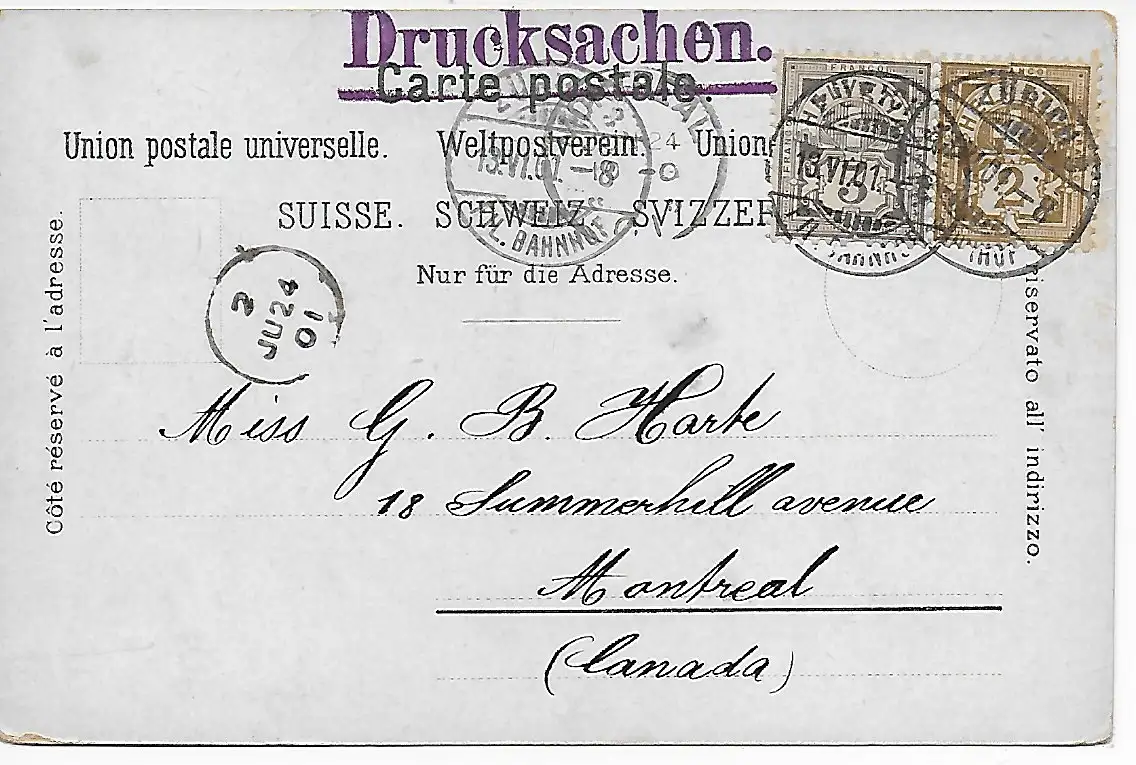 Drucksachen.
Carte postale.
Union postale universelle. Weltpostverein. Union
SUISSE. SCHWEIZ. SVIZZER
Nur für die Adresse.
Côté réservé à l'adresse.
riservato all' indirizzo.
FRANCO
HELVETIA
5
FRANCO
2
13.VI.01.-8
BAHNHOF
24
13.VI.01.
2
JU 24
01
Miss G. B. Harte
18 Summerhill avenue
Montreal
(Canada)